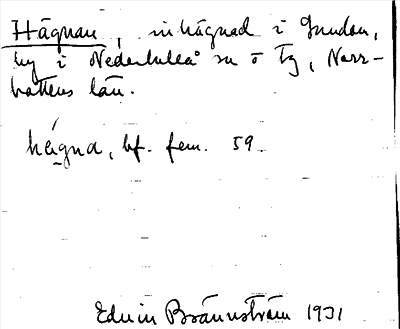 Hägnan, inhägnad i Gundan,
by i Nederluleå sn o tg, Norr-
bottens län.
hägna, bf. fem. 59.
Edvin Brännström 1931